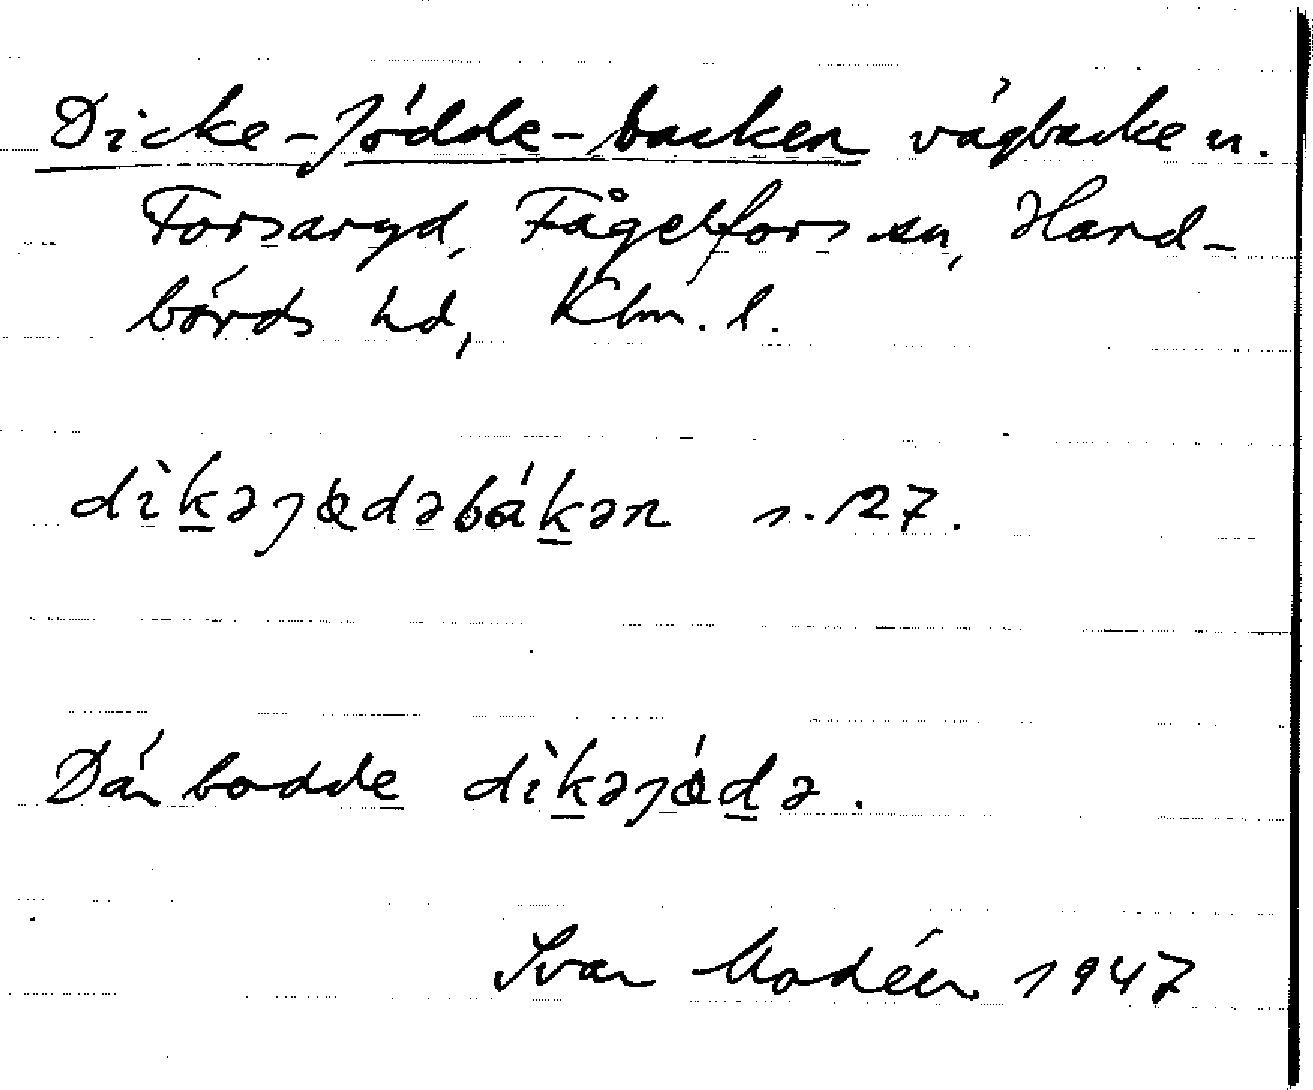 Dicke-Jödde-backen vägbacke n.
Forsaryd, Fågelfors sn, Hand-
börds hd, Klm. l.
dìkəjɵdəbákən s. 127.
Där bodde dìkəjɵ́də.
Ivar Modéer 1947